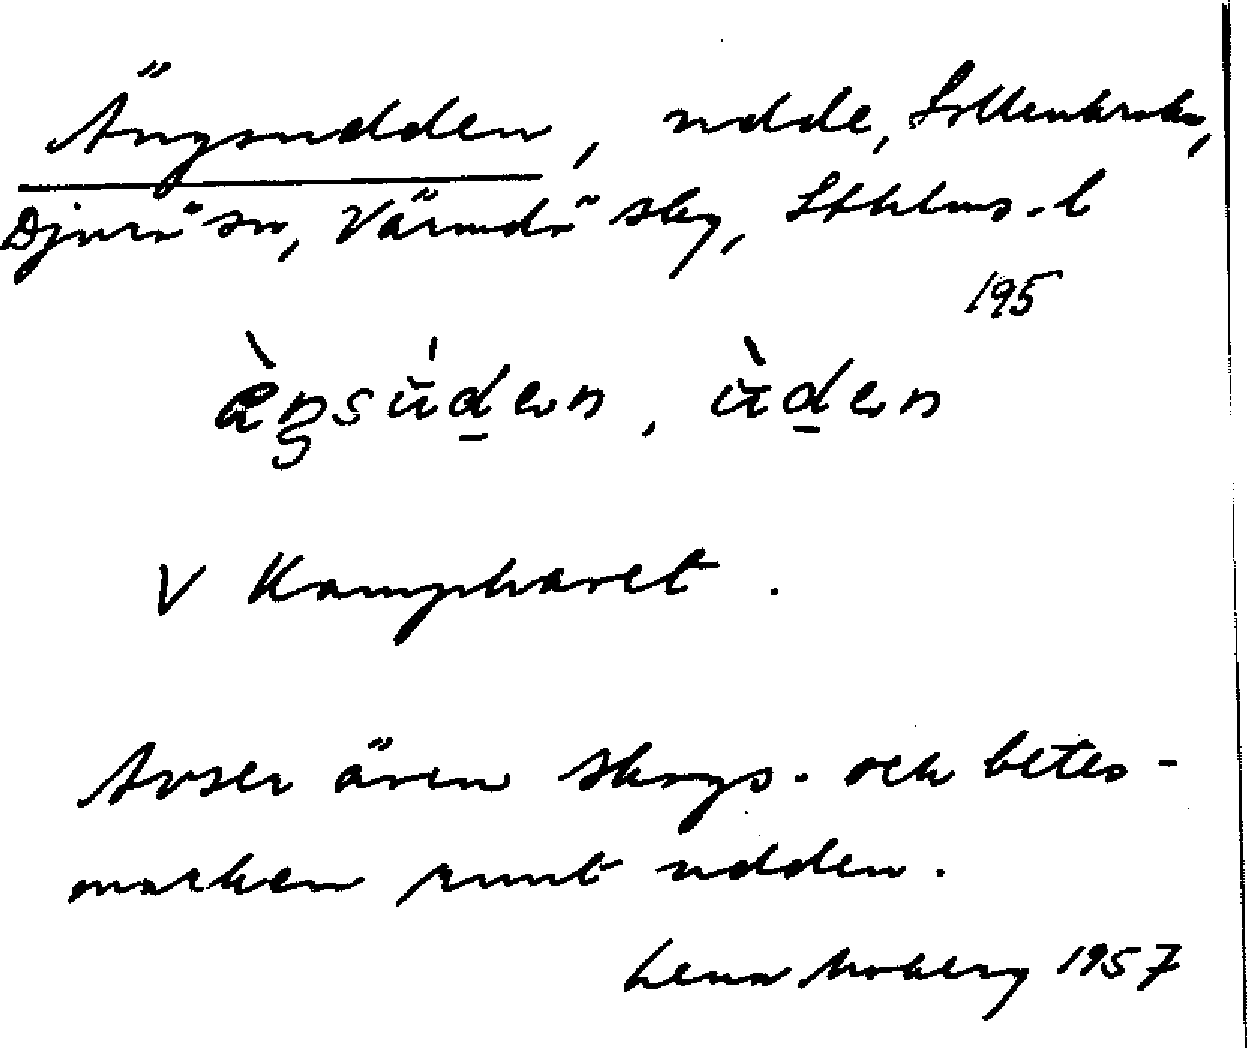 Ängsudden, udde, Sollenkroka,
Djurö sn, Värmdö skg, Sthlms. l
195
æ̀ŋsúden, ùden
V Kampharet.
Avser även skogs- och betes-
marken runt udden.
Lena Moberg 1957